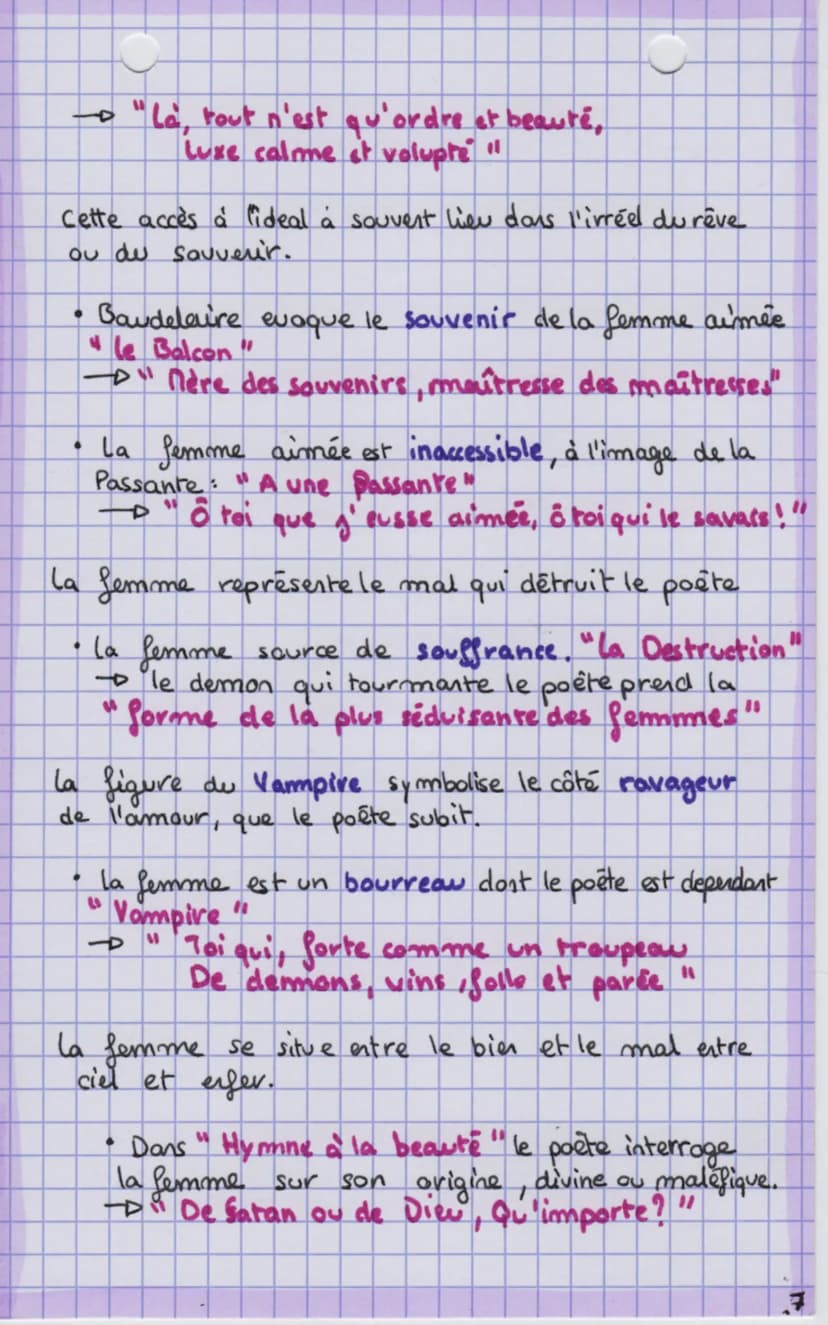 → "Là, tout n'est qu'ordre et beauté,
luxe calme et volupté"
Cette accès à l'ideal à souvent lieu dans l'irréel du rêve
ou du souvenir.
• Baudelaire evoque le souvenir de la femme aimée
"le Balcon"
→ "Mère des souvenirs, maîtresse des maîtresses"
• La femme aimée est inaccessible, à l'image de la
Passante : "A une Passante"
→ "Ô toi que j'eusse aimée, ô toi qui le savais !"
La femme représente le mal qui détruit le poète
• La femme source de souffrance. "La Destruction"
→ le demon qui tourmante le poête prend la
"forme de la plus séduisante des femmes"
La figure du Vampire symbolise le côté ravageur
de l'amour, que le poête subit.
• la femme est un bourreau dont le poète est dependant
"Vampire"
→ "Toi qui, forte comme un troupeau
De demons, vins, folle et parée"
La femme se situe entre le bien et le mal entre
ciel et enfer.
• Dans "Hymne à la beauté" le poète interroge
la femme sur son origine, divine ou maléfique.
→ "De Satan ou de Dieu, Qu'importe ?"
7